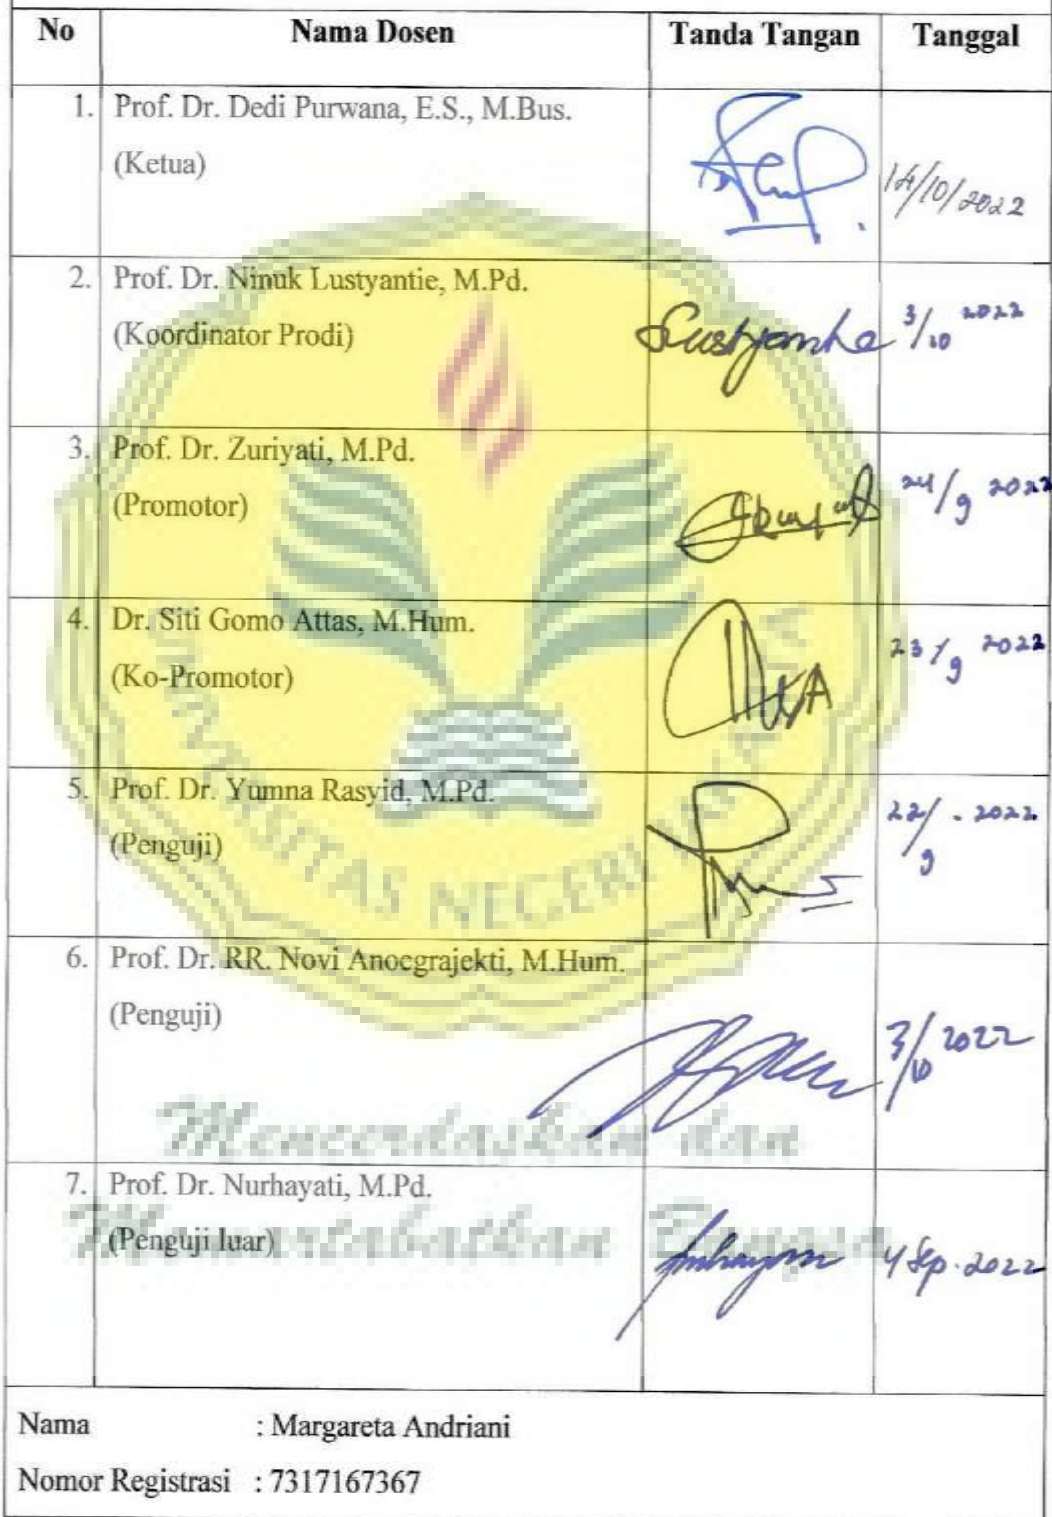 No Nama Dosen Tanda Tangan Tanggal
1. Prof. Dr. Dedi Purwana, E.S., M.Bus.
(Ketua)
14/10/2022
2. Prof. Dr. Ninuk Lustyantie, M.Pd.
(Koordinator Prodi)
3/10 2022
3. Prof. Dr. Zuriyati, M.Pd.
(Promotor)
24/9 2022
4. Dr. Siti Gomo Attas, M.Hum.
(Ko-Promotor)
23/9 2022
5. Prof. Dr. Yumna Rasyid, M.Pd.
(Penguji)
22/9 - 2022
6. Prof. Dr. RR. Novi Anoegrajekti, M.Hum.
(Penguji)
3/10 2022
7. Prof. Dr. Nurhayati, M.Pd.
(Penguji luar)
4 Sep. 2022
UNIVERSITAS NEGERI JAKARTA
Mencerdaskan dan
Memartabatkan Bangsa
Nama : Margareta Andriani
Nomor Registrasi : 7317167367